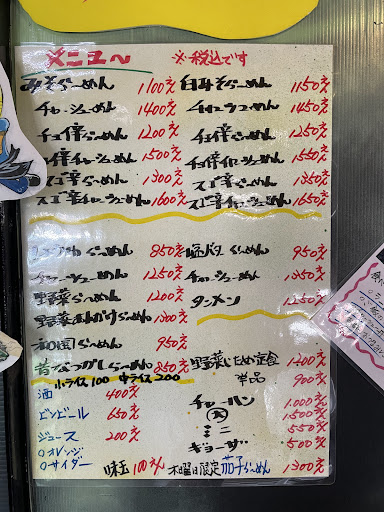 メニュー ※税込です
みそらーめん 1100元
チャーシューめん 1400元
チョイ辛らーめん 1200元
チョイ辛チャーシューめん 1500元
スゴ辛らーめん 1300元
スゴ辛チャーシューめん 1600元
白みそらーめん 1150元
チャーシューめん 1450元
チョイ辛らーめん 1250元
チョイ辛チャーシューめん 1550元
スゴ辛らーめん 1350元
スゴ辛チャーシューめん 1650元
らーめん 850元
チャーシューめん 1250元
野菜らーめん 1200元
野菜あんかけらーめん 1300元
らーめん 950元
昔なつかしらーめん 850元
小ライス100 中ライス200
塩バターらーめん 950元
チャーシューめん 1350元
タンメン 1250元
野菜いため定食 1200元
単品 900元
チャーハン 1,000元
大 1,500元
ミニ 550元
ギョーザ 500元
酒 400元
ビンビール 650元
ジュース 200元
○オレンジ
○サイダー
味玉 100元
木曜日限定 茄子らーめん 1300元